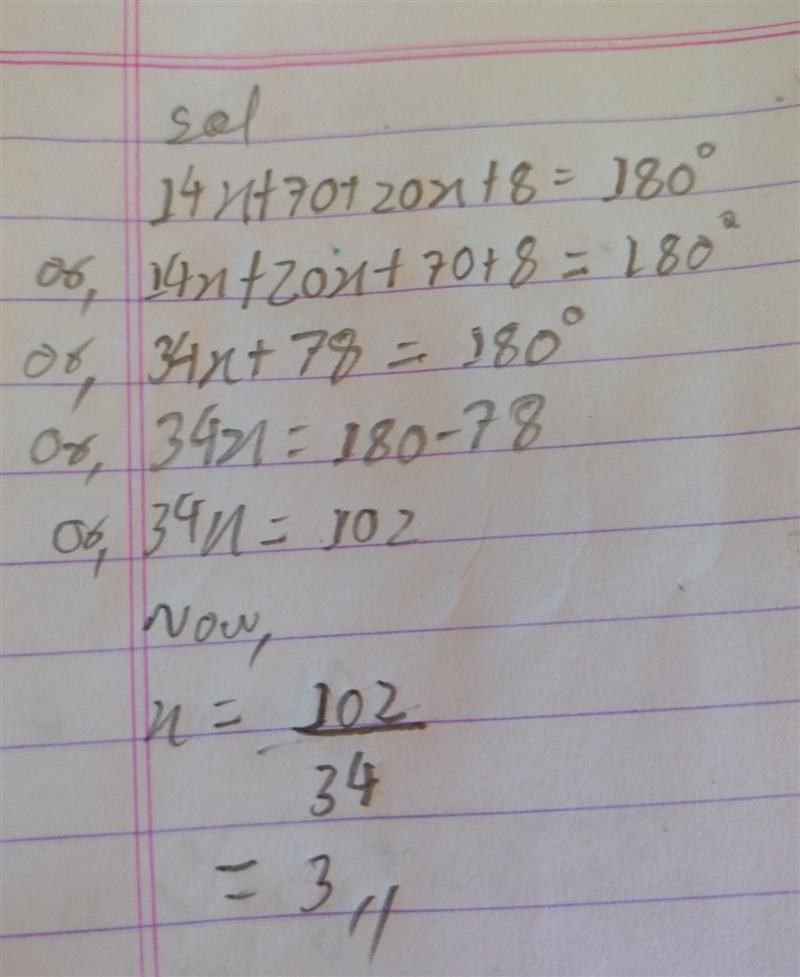 Sol
14x+70+20x+8 = 180°
Or, 14x+20x+70+8 = 180°
Or, 34x+78 = 180°
Or, 34x = 180-78
Or, 34x = 102
Now,
x = 102/34
= 3 //